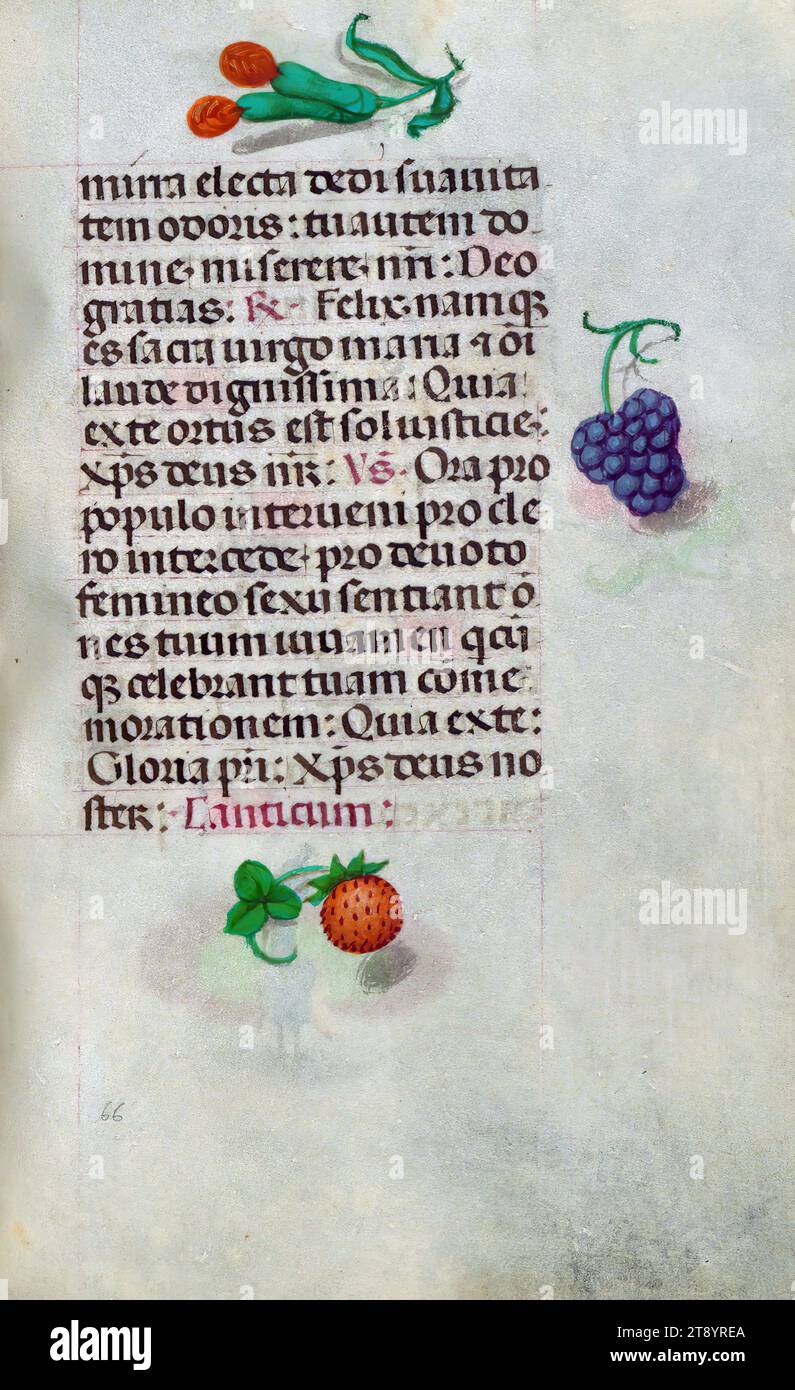 mirra electa dedi suauita
tem odoris: tu autem do
mine, miserere, nr̄i: Deo
gratias: R̸. Felix, namqꝫ
es sacra uirgo maria ⁊ oī
laude dignissima: Quia
exte ortus est sol iusticie,:
xp̄s deus nr̄: Vs̄. Ora pro
populo interueni pro cle
ro intercede, pro deuoto
femineo sexu sentiant ō
nes tuum iuuamen qcū
qꝫ celebrant tuam cōme
morationem: Quia exte:
Gloria pr̄i: Xp̄s deus no
ster: Canticum:
66
alamy
alamy
alamy
Image ID: 2T8YREA
www.alamy.com